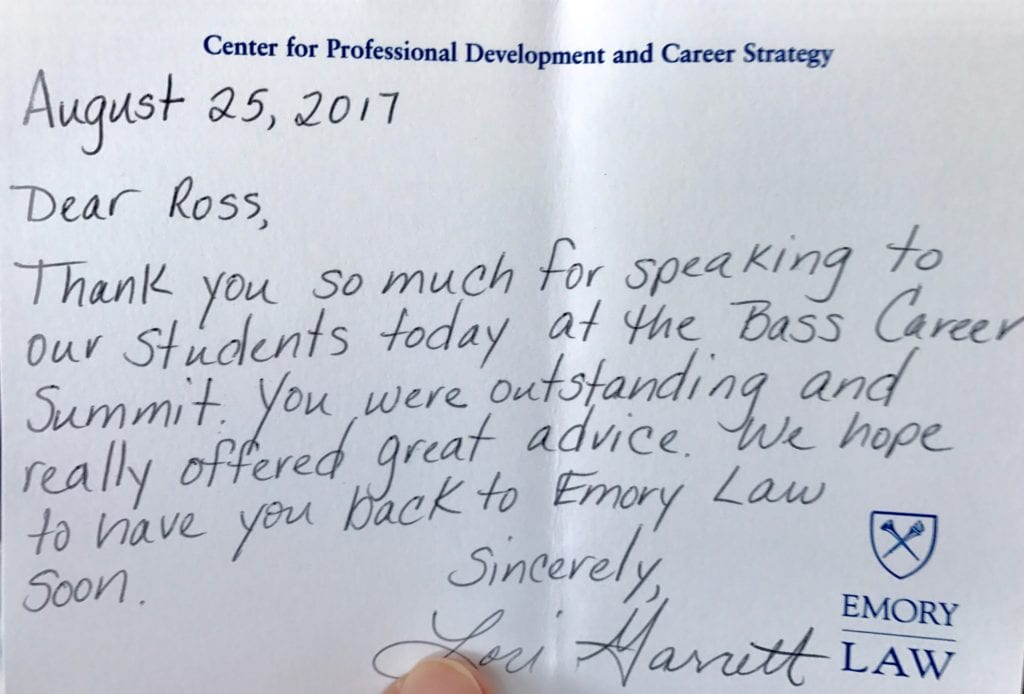 Center for Professional Development and Career Strategy
August 25, 2017
Dear Ross,
Thank you so much for speaking to
our students today at the Bass Career
Summit. You were outstanding and
really offered great advice. We hope
to have you back to Emory Law
soon.
Sincerely,
Lori Garrett
EMORY
LAW